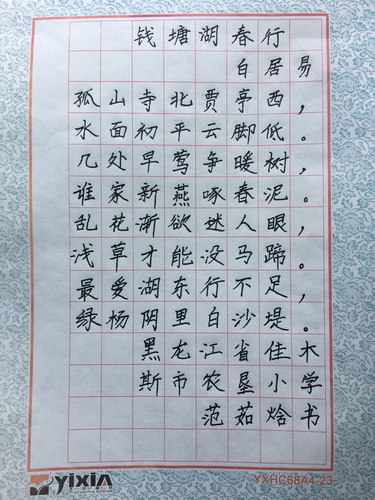 钱塘湖春行
白居易
孤山寺北贾亭西，
水面初平云脚低。
几处早莺争暖树，
谁家新燕啄春泥。
乱花渐欲迷人眼，
浅草才能没马蹄。
最爱湖东行不足，
绿杨阴里白沙堤。
黑龙江省佳木
斯市农垦小学
范茹焓书
yixin
YXHC68A4-23